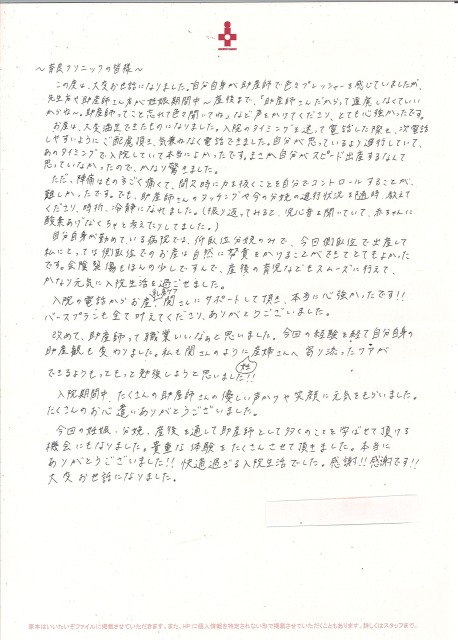 ～奈良クリニックの皆様～
この度は、大変お世話になりました。自分自身が助産師で色々プレッシャーを感じていましたが、
先生方や助産師さん方が妊娠期間中～産後まで、「助産師さんだからって遠慮しなくていい
からね。助産師ってこと忘れて色々聞いてね」など声をかけてくださり、とても心強かったです。
お産は、大変満足できたものになりました。入院のタイミングを迷って電話した際も、次電話
しやすいようにご配慮頂き、気兼ねなく電話できました。自分が思っているより進行していて、
あのタイミングで入院していて本当によかったです。まさか自分がスピード出産するなんて
思っていなかったので、かなり驚きました。
ただ、陣痛はものすごく痛くて、間欠時に力を抜くことを自分でコントロールすることが、
難しかったです。でも、助産師さんのタッチングや今の分娩の進行状況を随時、教えて
くださり、時折、冷静になれました。(振り返ってみると、児心音を聞いていて、赤ちゃんに
酸素あげなくちゃと考えたりしてました。)
自分自身が勤めている病院では、仰臥位分娩のみで、今回側臥位で出産して
私にとっては側臥位でのお産は自然に努責をかけることができてとてもよかった
です。会陰裂傷もほんの少しですんで、産後の育児などもスムーズに行えて、
かなり元気に入院生活を過ごせました。
入院の電話からお産、乳房ケア 関さんにサポートして頂き、本当に心強かったです!!
バースプランも全て叶えてくださり、ありがとうございました。
改めて、助産師って職業いいなぁと思いました。今回の経験を経て自分自身の
助産観も変わりました。私も関さんのように産婦さんへ寄り添ったケアが
妊
できるようもっともっと勉強しようと思いました!!
入院期間中、たくさんの助産師さんの優しい声かけや笑顔に元気をもらいました。
たくさんのお心遣いありがとうございました。
今回の妊娠、分娩、産後を通して助産師として多くのことを学ばせて頂ける
機会にもなりました。貴重な体験をたくさんさせて頂きました。本当に
ありがとうございました!! 快適過ぎる入院生活でした。感謝!!感謝です!!
大変お世話になりました。
原本はいいたいぞファイルに掲載させていただきます。また、HPに個人情報を特定されない形で掲載させていただくこともあります。詳しくはスタッフまで。